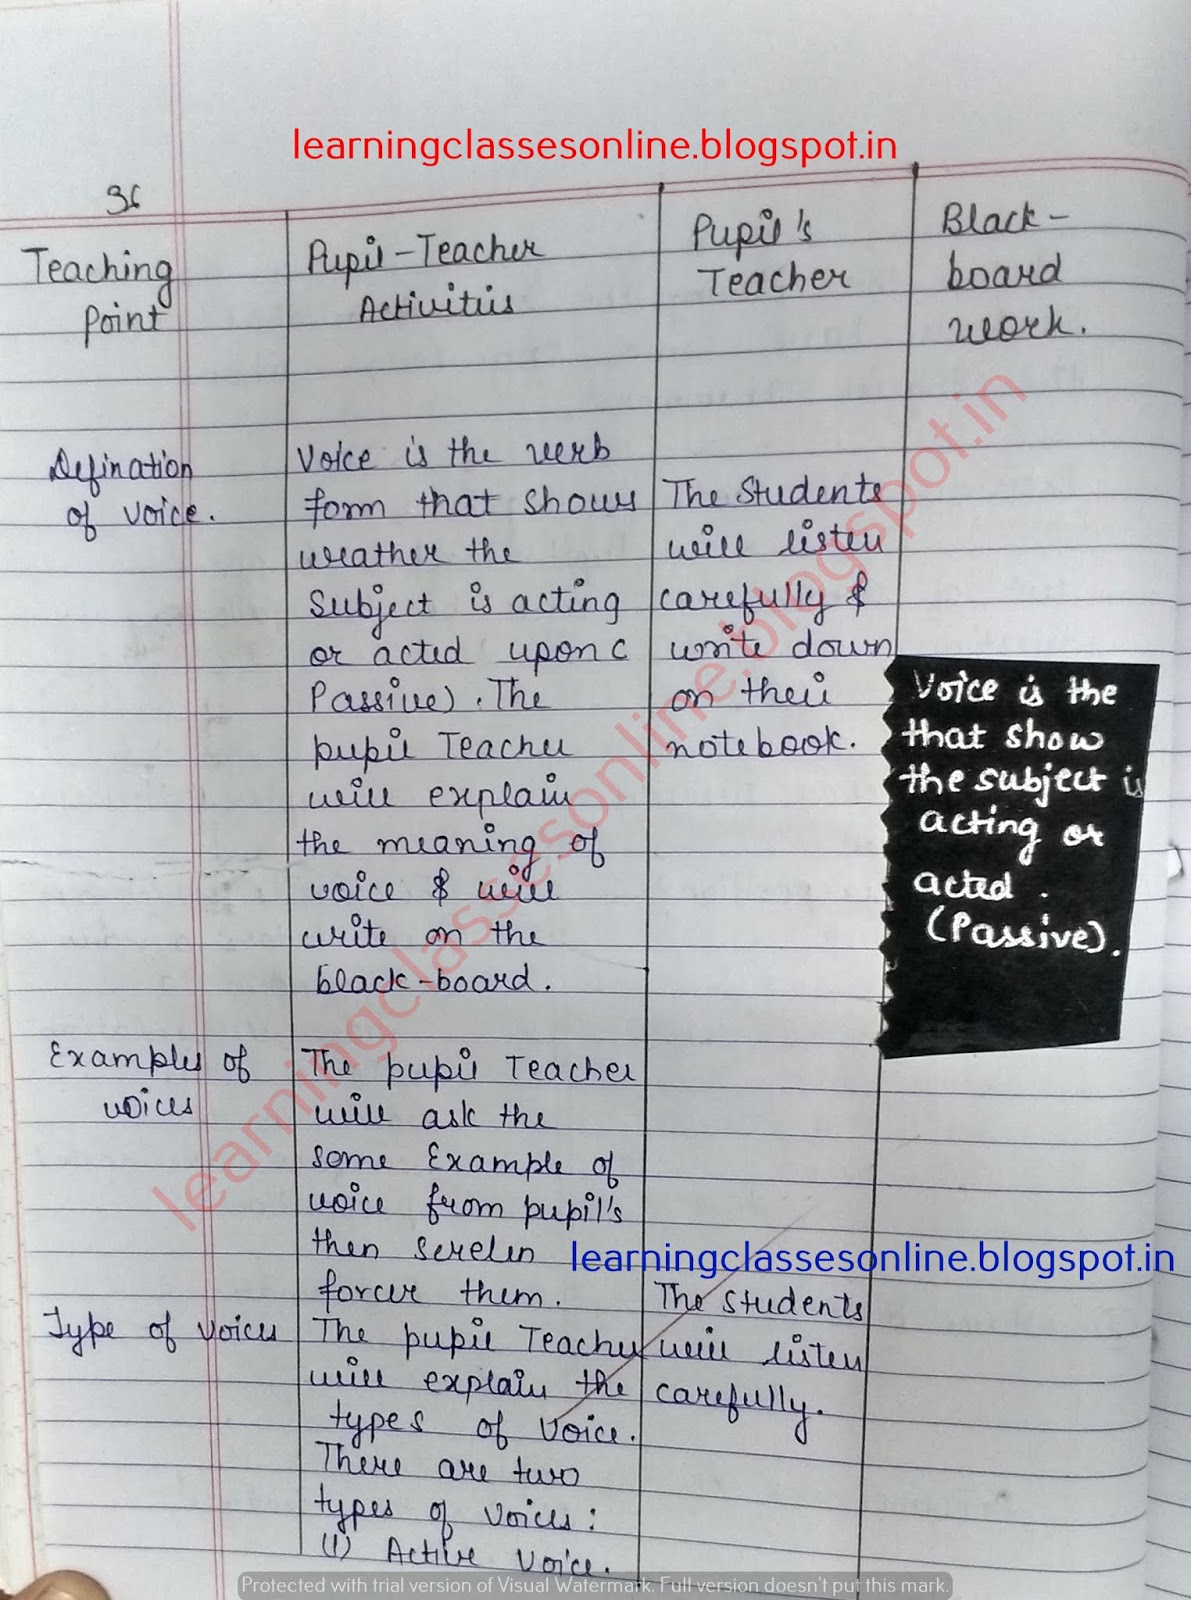 learningclassesonline.blogspot.in
36
Teaching
Point
Pupil-Teacher
Activities
Pupil's
Teacher
Black-
board
work.
Defination
of voice.
Voice is the verb
form that shows
weather the
Subject is acting
or acted upon (
Passive). The
pupil Teacher
will explain
the meaning of
voice & will
write on the
black-board.
The Students
will listen
carefully &
write down
on their
notebook.
Voice is the
that show
the subject is
acting or
acted.
(Passive).
Examples of
voices
The pupil Teacher
will ask the
some Example of
voice from pupil's
then
them.
Type of voices
The pupil Teacher
will explain the
types of voice.
There are two
types of voices:
(1) Active voice.
The Students
will listen
carefully.
learningclassesonline.blogspot.in
learningclassesonline.blogspot.in
Protected with trial version of Visual Watermark. Full version doesn't put this mark.